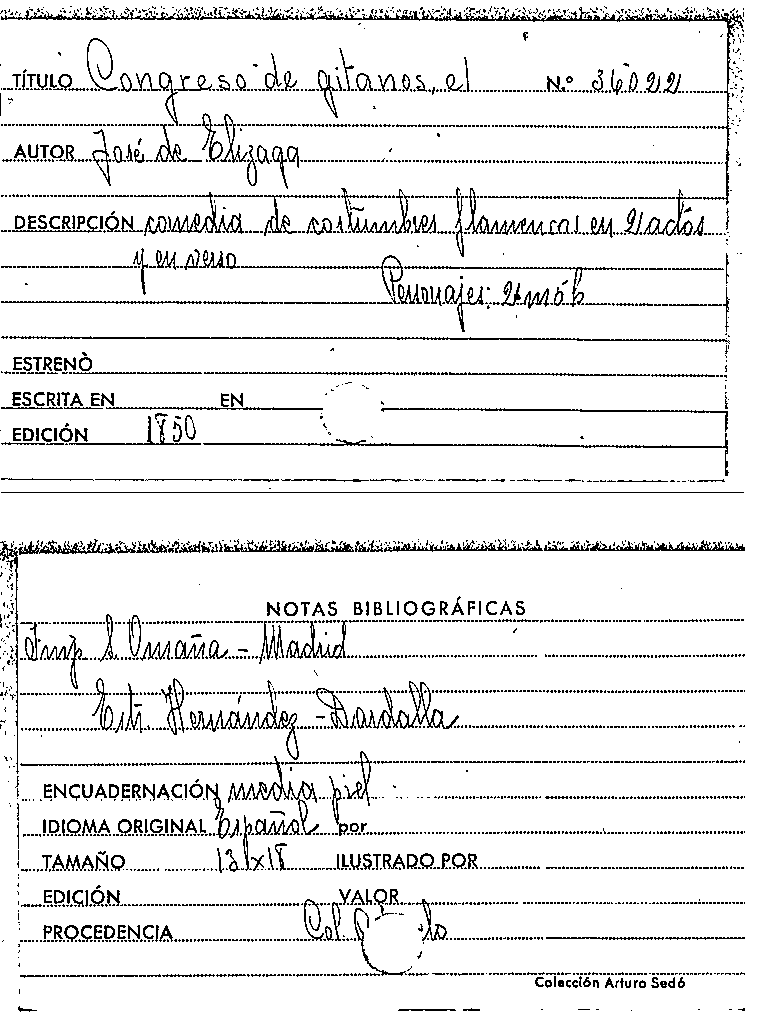 TÍTULO Congreso de gitanos, el N.º 36022
AUTOR José de Elizaga
DESCRIPCIÓN comedia de costumbres flamencas en 2 actos
y en verso
Personajes: 2 m 5 h
ESTRENÒ
ESCRITA EN EN
EDICIÓN 1850
NOTAS BIBLIOGRÁFICAS
Imp S Omaña - Madrid
Estr. Hernández - Dardalla
ENCUADERNACIÓN media piel
IDIOMA ORIGINAL Español por
TAMAÑO 13x18 ILUSTRADO POR
EDICIÓN VALOR
PROCEDENCIA Col.
Colección Arturo Sedó